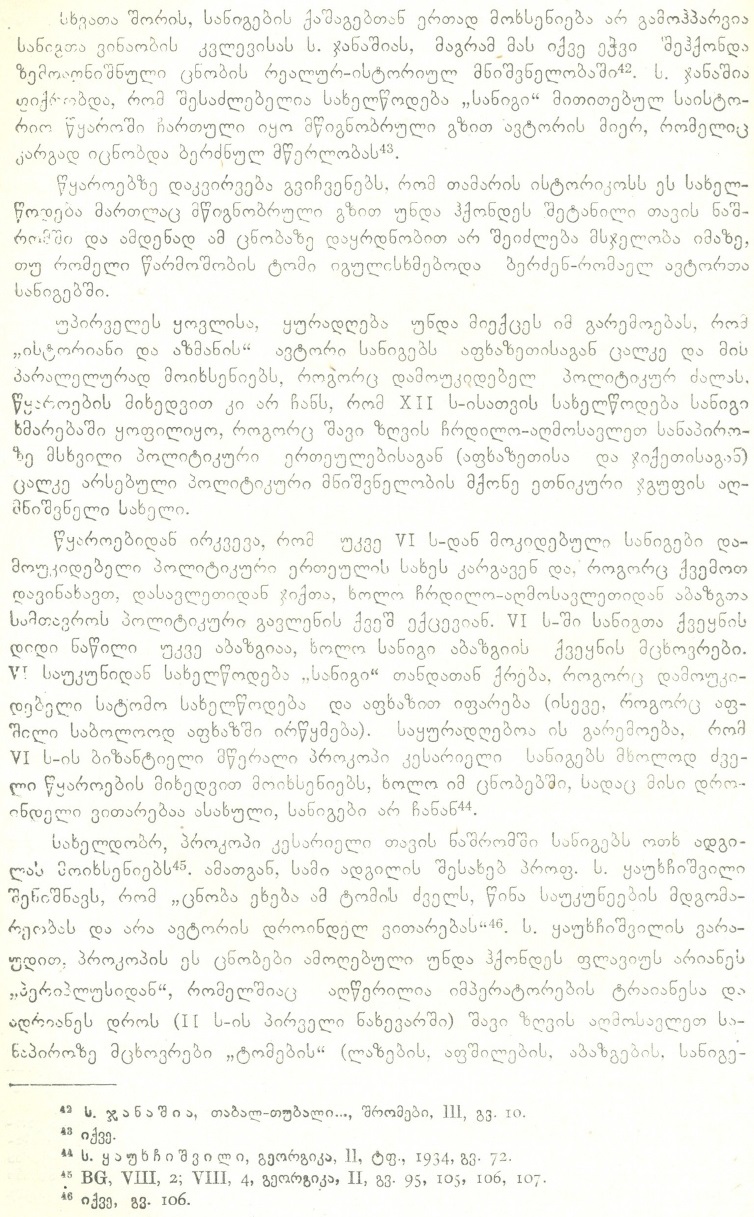 სხვათა შორის, სანიგების ქაშაგებთან ერთად მოხსენიება არ გამოჰპარვია
სანიგთა ვინაობის კვლევისას ს. ჯანაშიას, მაგრამ მას იქვე ეჭვი შეჰქონდა
ზემოაღნიშნული ცნობის რეალურ-ისტორიულ მნიშვნელობაში⁴². ს. ჯანაშია
ფიქრობდა, რომ შესაძლებელია სახელწოდება „სანიგი“ მითითებულ საისტო-
რიო წყაროში ჩართული იყო მწიგნობრული გზით ავტორის მიერ, რომელიც
კარგად იცნობდა ბერძნულ მწერლობას⁴³.
წყაროებზე დაკვირვება გვიჩვენებს, რომ თამარის ისტორიკოსს ეს სახელ-
წოდება მართლაც მწიგნობრული გზით უნდა ჰქონდეს შეტანილი თავის ნაშ-
რომში და ამდენად ამ ცნობაზე დაყრდნობით არ შეიძლება მსჯელობა იმაზე,
თუ რომელი წარმოშობის ტომი იგულისხმებოდა ბერძენ-რომაელ ავტორთა
სანიგებში.
უპირველეს ყოვლისა, ყურადღება უნდა მიექცეს იმ გარემოებას, რომ
„ისტორიანი და აზმანის“ ავტორი სანიგებს აფხაზეთისაგან ცალკე და მის
პარალელურად მოიხსენიებს, როგორც დამოუკიდებელ პოლიტიკურ ძალას.
წყაროების მიხედვით კი არ ჩანს, რომ XII ს-ისათვის სახელწოდება სანიგი
ხმარებაში ყოფილიყო, როგორც შავი ზღვის ჩრდილო-აღმოსავლეთ სანაპირო-
ზე მსხვილი პოლიტიკური ერთეულებისაგან (აფხაზეთისა და ჯიქეთისაგან)
ცალკე არსებული პოლიტიკური მნიშვნელობის მქონე ეთნიკური ჯგუფის აღ-
მნიშვნელი სახელი.
წყაროებიდან ირკვევა, რომ უკვე VI ს-დან მოკიდებული სანიგები და-
მოუკიდებელი პოლიტიკური ერთეულის სახეს კარგავენ და, როგორც ქვემოთ
დავინახავთ, დასავლეთიდან ჯიქთა, ხოლო ჩრდილო-აღმოსავლეთიდან აბაზგთა
სამთავროს პოლიტიკური გავლენის ქვეშ ექცევიან. VI ს-ში სანიგთა ქვეყნის
დიდი ნაწილი უკვე აბაზგიაა, ხოლო სანიგი აბაზგიის ქვეყნის მცხოვრები.
VI საუკუნიდან სახელწოდება „სანიგი“ თანდათან ქრება, როგორც დამოუკი-
დებელი სატომო სახელწოდება და აფხაზით იფარება (ისევე, როგორც აფ-
შილი საბოლოოდ აფხაზში ირწყმება). საყურადღებოა ის გარემოება, რომ
VI ს-ის ბიზანტიელი მწერალი პროკოპი კესარიელი სანიგებს მხოლოდ ძვე-
ლი წყაროების მიხედვით მოიხსენიებს, ხოლო იმ ცნობებში, სადაც მისი დრო-
ინდელი ვითარებაა ასახული, სანიგები არ ჩანან⁴⁴.
სახელდობრ, პროკოპი კესარიელი თავის ნაშრომში სანიგებს ოთხ ადგი-
ლას მოიხსენიებს⁴⁵. ამათგან, სამი ადგილის შესახებ პროფ. ს. ყაუხჩიშვილი
შენიშნავს, რომ „ცნობა ეხება ამ ტომის ძველს, წინა საუკუნეების მდგომა-
რეობას და არა ავტორის დროინდელ ვითარებას“⁴⁶. ს. ყაუხჩიშვილის ვარა-
უდით, პროკოპის ეს ცნობები ამოღებული უნდა ჰქონდეს ფლავიუს არიანეს
„პერიპლუსიდან“, რომელშიაც აღწერილია იმპერატორების ტრაიანესა და
ადრიანეს დროს (II ს-ის პირველი ნახევარში) შავი ზღვის აღმოსავლეთ სა-
ნაპიროზე მცხოვრები „ტომების“ (ლაზების, აფშილების, აბაზგების, სანიგე-
⁴² ს. ჯანაშია, თაბალ-თუბალი..., შრომები, III, გვ. 10.
⁴³ იქვე.
⁴⁴ ს. ყაუხჩიშვილი, გეორგიკა, II, ტფ., 1934, გვ. 72.
⁴⁵ BG, VIII, 2; VIII, 4, გეორგიკა, II, გვ. 95, 105, 106, 107.
⁴⁶ იქვე, გვ. 106.